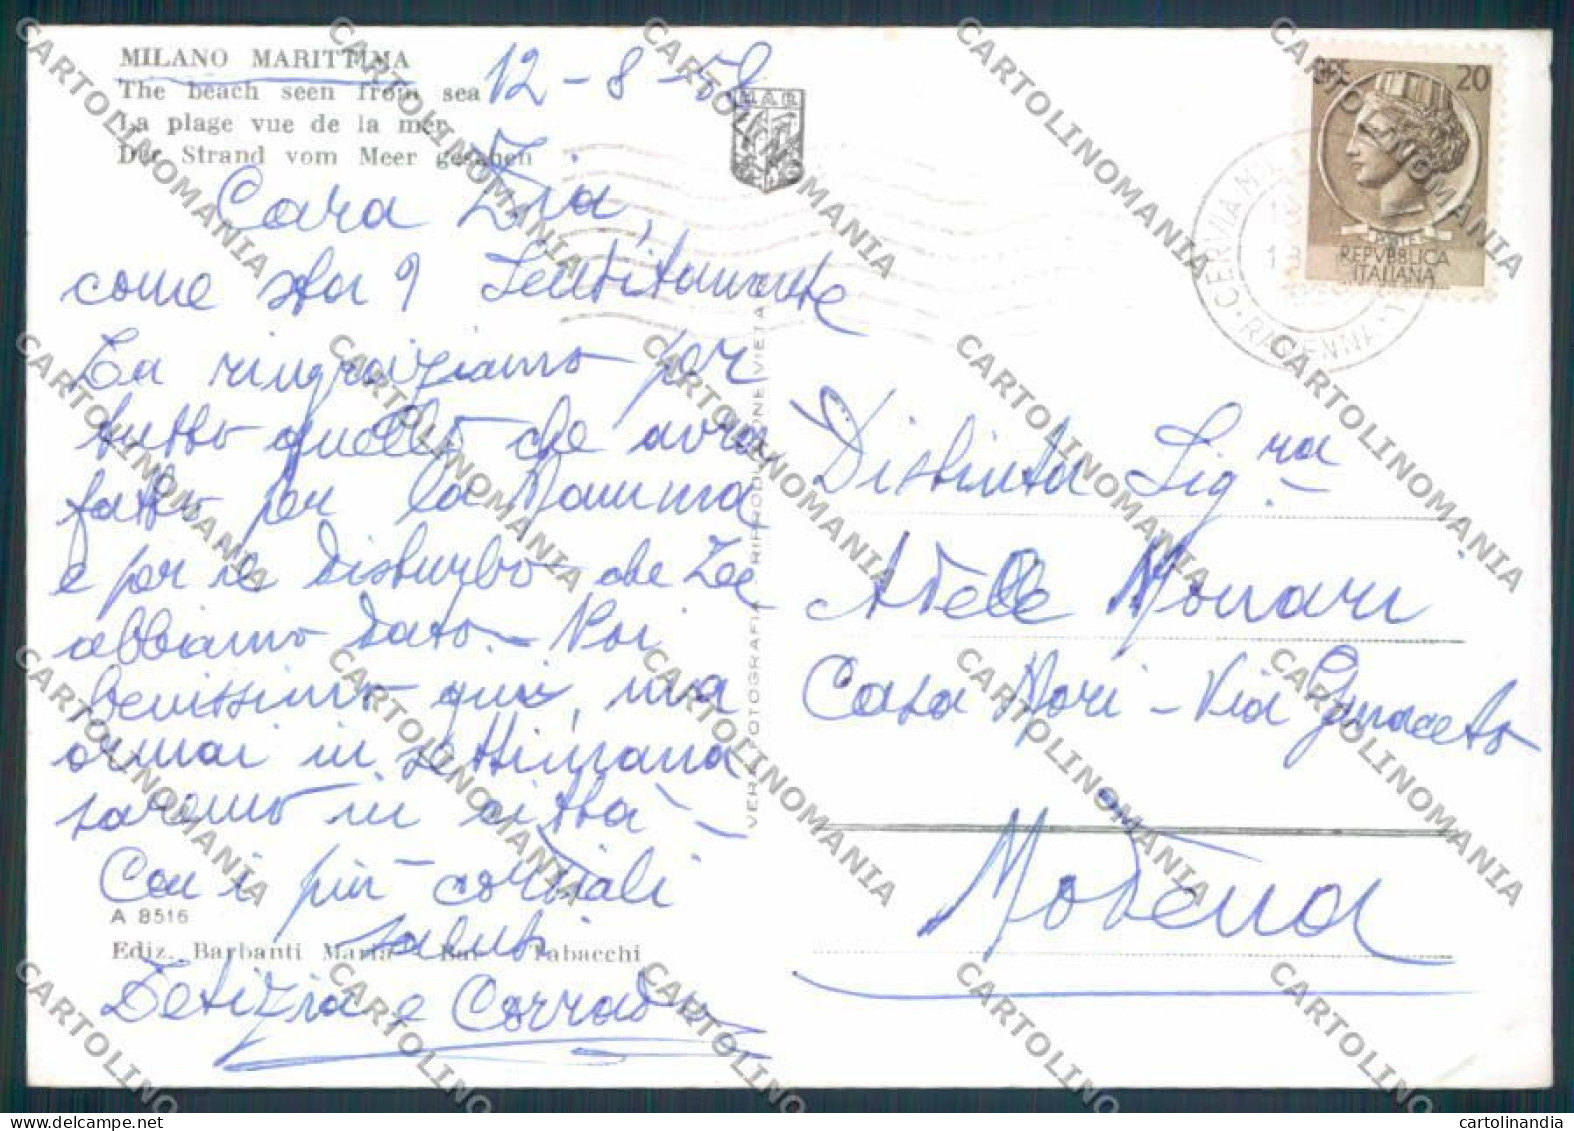 MILANO MARITTIMA
The beach seen from sea
La plage vue de la mer
Der Strand vom Meer gesehen
12-8-58
Cara Zia,
come sta? Sentitamente
La ringraziamo per
tutto quello che avrà
fatto per la Mamma
e per il disturbo che Le
abbiamo dato. - Noi
benissimo qui, ma
ormai in settimana
saremo in città -
Con i più cordiali
saluti
Letizia e Corrado
A 8516
Ediz. Barbanti Maria - Bar - Tabacchi
VERA FOTOGRAFIA - RIPRODUZIONE VIETATA
20
REPVBBLICA
ITALIANA
CERVIA-MIL
RAVENNA
Distinta Sig.ra
Adele Monari
Casa Mori - Via Guaceto
Modena
CARTOLINOMANIA
cartolinandia